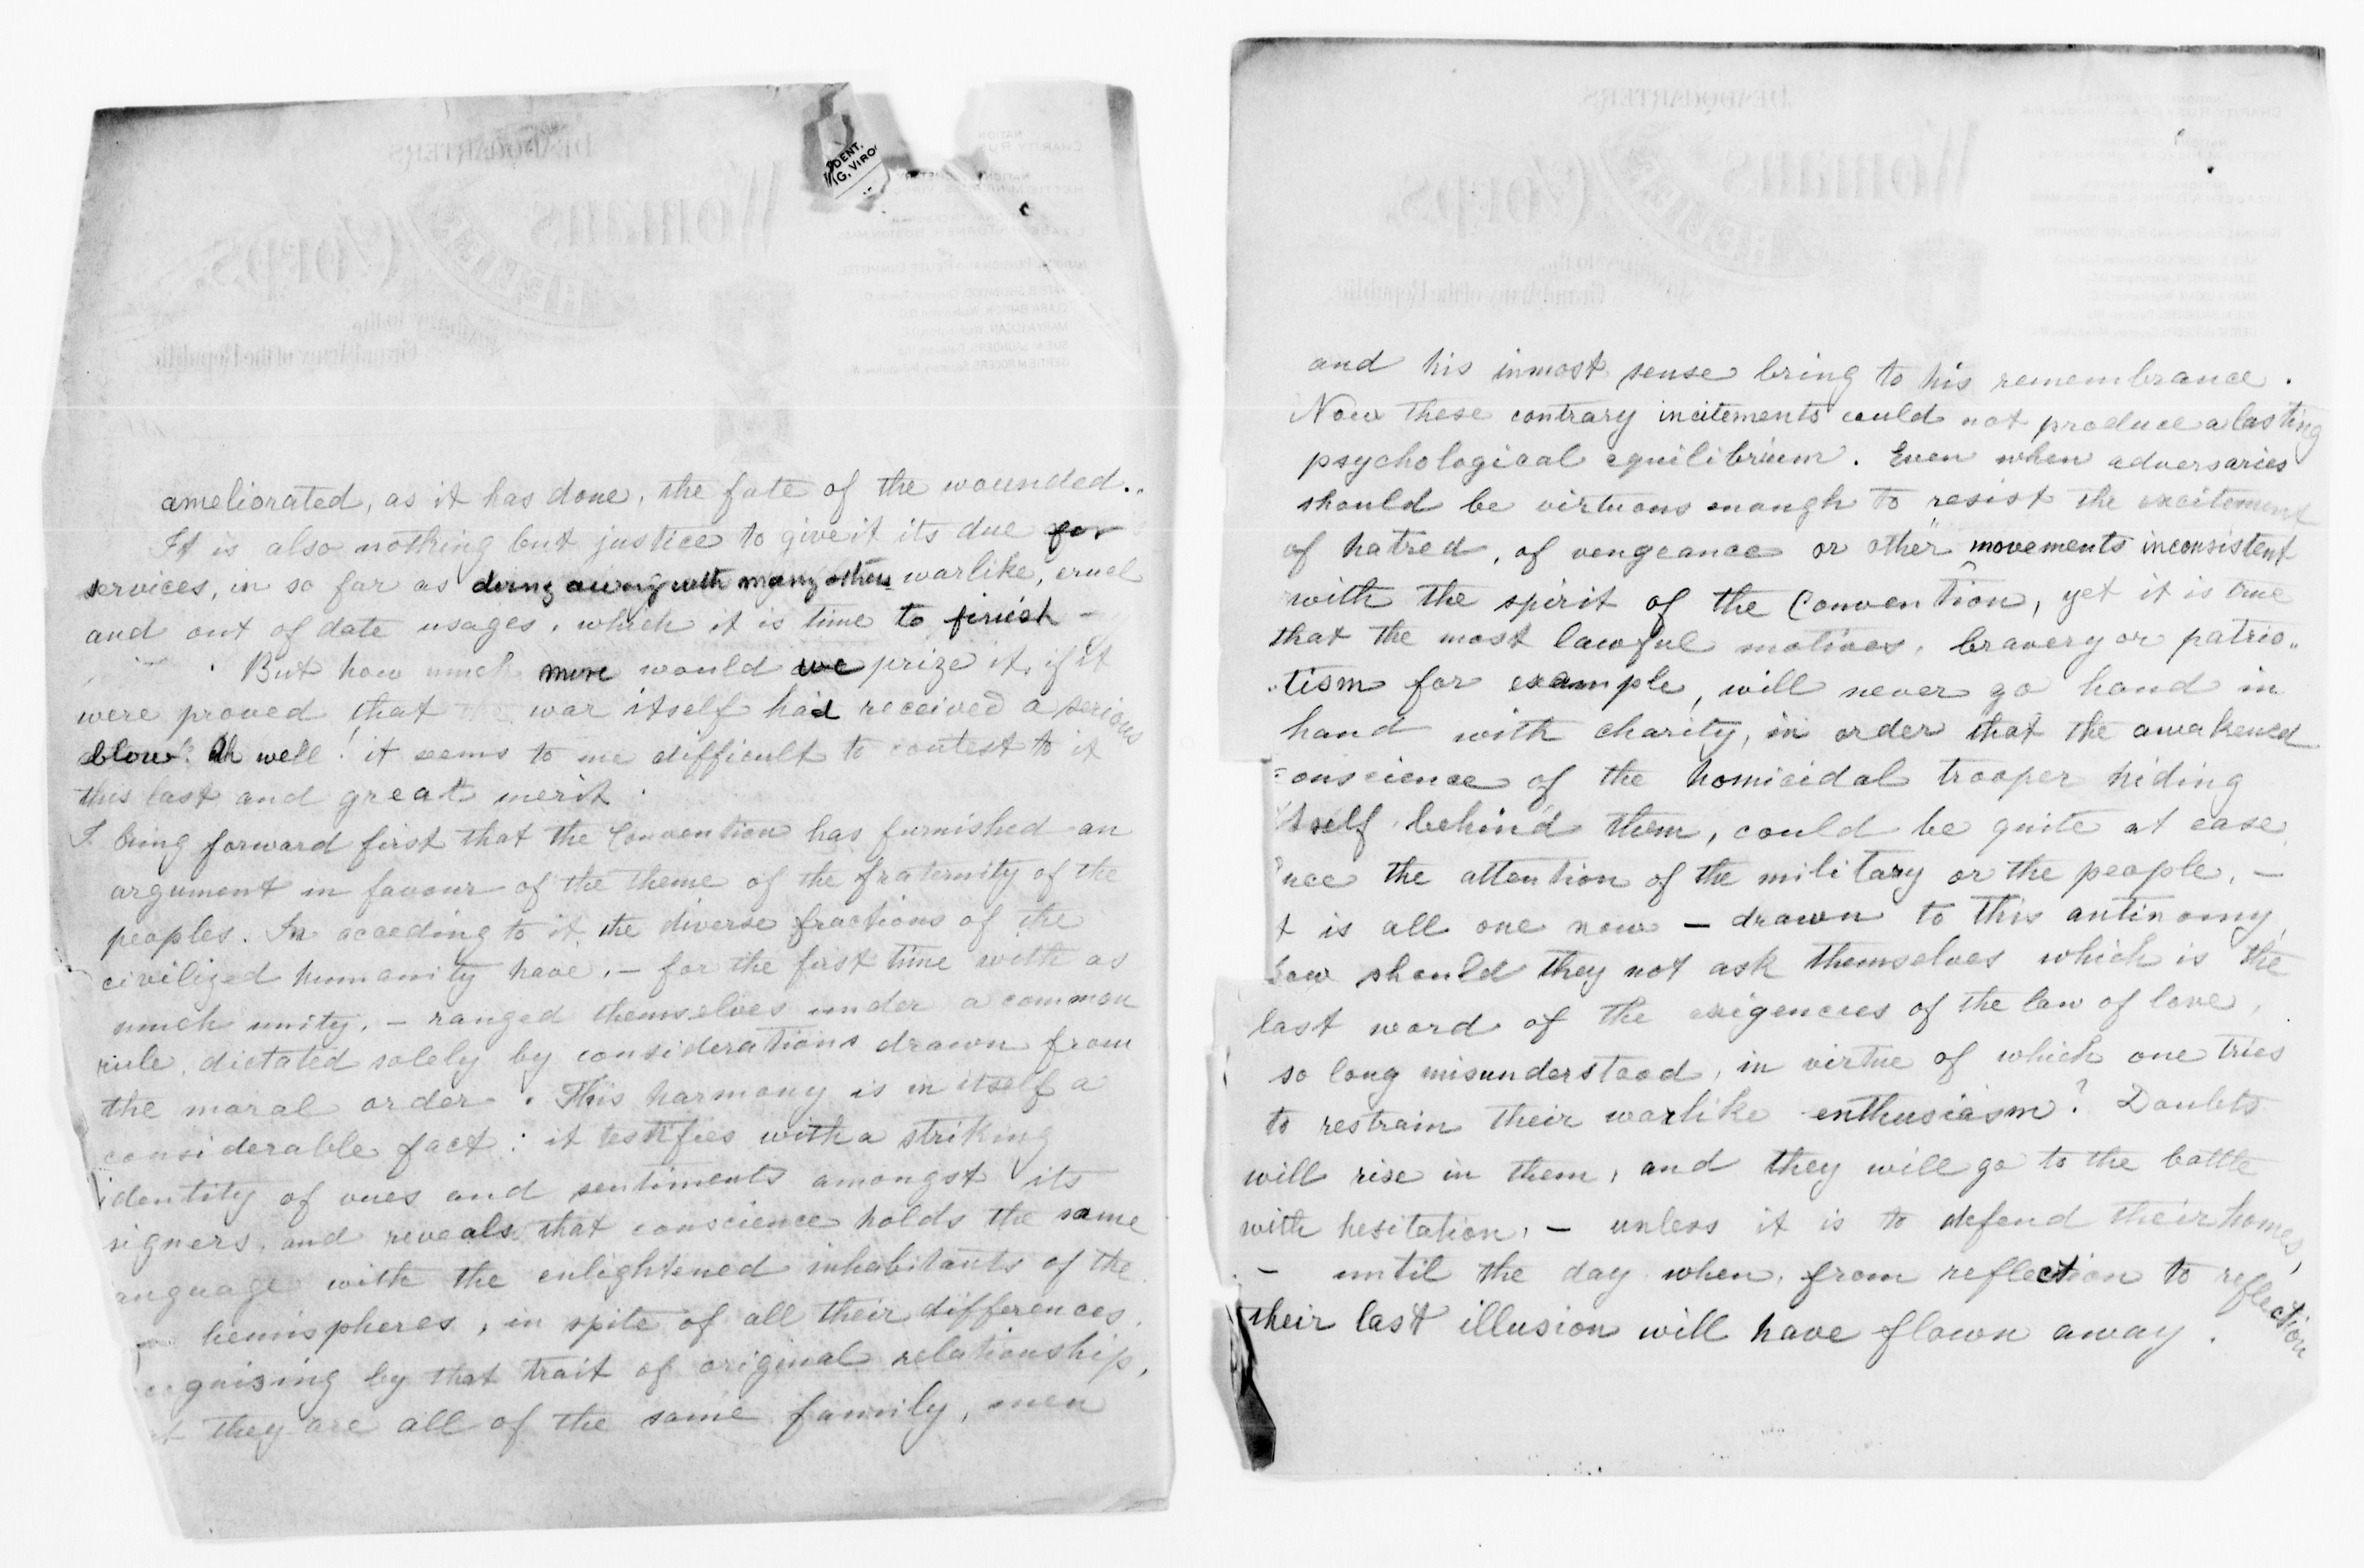 DENT.
G. VIRO
ameliorated, as it has done, the fate of the wounded..
It is also nothing but justice to give it its due for
services, in so far as doing away with many others warlike, cruel
and out of date usages, which it is time to finish -
But how much more would we prize it, if it
were proved that war itself had received a serious
blow? Ah well! it seems to me difficult to contest to it
this last and great merit.
I bring forward first that the Convention has furnished an
argument in favour of the theme of the fraternity of the
peoples. In acceding to it the diverse fractions of the
civilized humanity have, - for the first time with as
much unity, - ranged themselves under a common
rule, dictated solely by considerations drawn from
the moral order. This harmony is in itself a
considerable fact: it testifies with a striking
identity of vues and sentiments amongst its
signers, and reveals that conscience holds the same
anguage with the enlightened inhabitants of the
hemispheres, in spite of all their differences,
gnising by that trait of original relationship,
t they are all of the same family, men
HEADQUARTERS
Womans RELIEF Corps.
Auxiliary to the
Grand Army of the Republic
and his inmost sense bring to his remembrance.
Now these contrary incitements could not produce a lasting
psychological equilibrium. Even when adversaries
should be virtuous enough to resist the excitement
of hatred, of vengeance or other movements inconsistent
with the spirit of the Convention, yet it is true
that the most lawful motives, bravery or patrio„
„tism for example, will never go hand in
hand with charity, in order that the awakened
onscience of the homicidal trooper hiding
itself behind them, could be quite at ease.
nce the attention of the military or the people, -
t is all one now - drawn to this antinomy,
how should they not ask themselves which is the
last word of the exigencies of the law of love,
so long misunderstood, in virtue of which one tries
to restrain their warlike enthusiasm? Doubts
will rise in them, and they will go to the battle
with hesitation, - unless it is to defend their homes,
- until the day when, from reflection to reflection
their last illusion will have flown away.